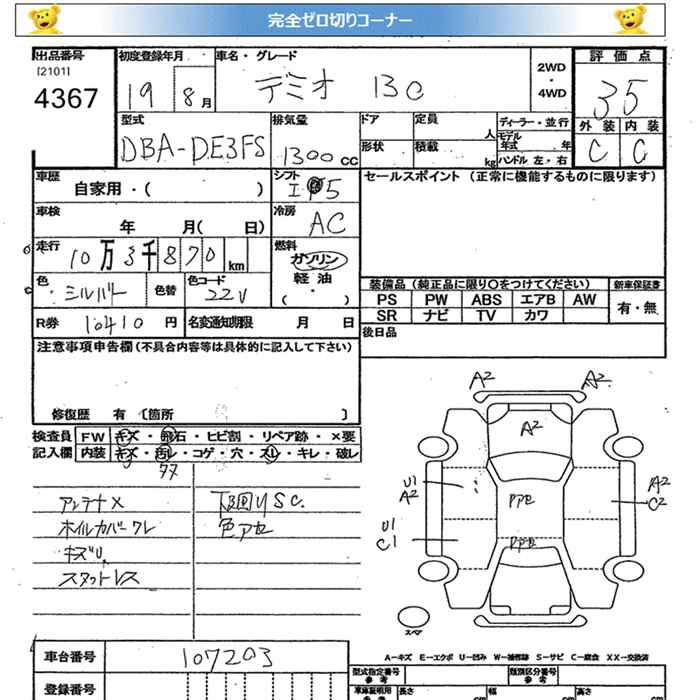 完全ゼロ切りコーナー
出品番号 初度登録年月 車名・グレード 2WD・4WD 評価点
[2101]
4367 19 8月 デミオ 13C 35
型式 排気量 ドア 定員 人 ディーラー・並行 外装 内装
DBA-DE3FS 1300cc 形状 積載 kg モデル年式 年 ハンドル 左・右 C C
車歴 自家用・( ) シフト I 5 セールスポイント (正常に機能するものに限ります)
車検 年 月( 日) 冷房 AC
走行 10万3千870km 燃料 ガソリン 軽油・( )
色 シルバー 色替 色コード 22V
装備品 (純正品に限り○をつけてください) 新車保証書
PS PW ABS エアB AW 有・無
SR ナビ TV カワ
R券 10410円 名変通知期限 月 日 後日品
注意事項申告欄(不具合内容等は具体的に記入して下さい)
修復歴 有〔箇所 〕
検査員 FW キズ・飛石・ヒビ割・リペア跡・×要
記入欄 内装 キズ・汚レ・コゲ・穴・スレ・キレ・破レ
アンテナX 下回りSC.
ホイルカバーワレ 色アセ
キズU
スタットレス
A2 A2
A2
U1 A2
A2 C2
U1 C1
スペア
A-キズ E-エクボ U-凹み W-補修跡 S-サビ C-腐食 XX-交換済
車台番号 107203
登録番号
型式指定番号 参考 類別区分番号 参考
車庫証明用 参考 長さ cm 幅 cm 高さ cm